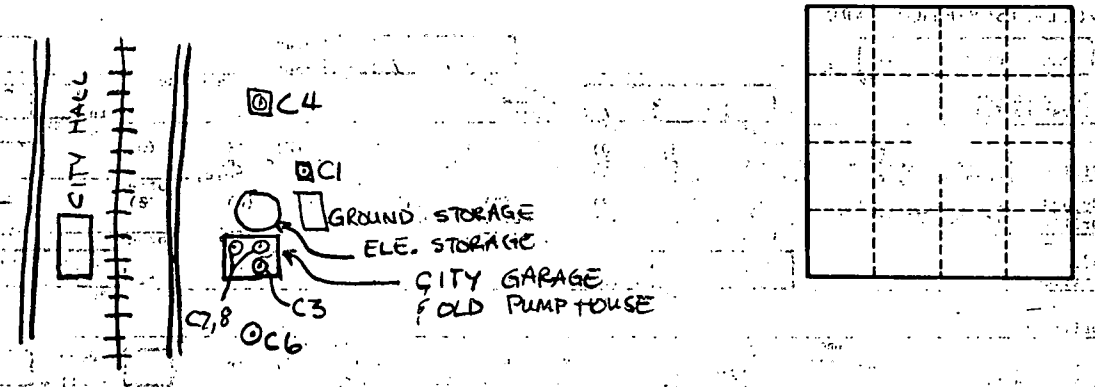 CITY HALL
C4
C1
GROUND STORAGE
ELE. STORAGE
CITY GARAGE
& OLD PUMP HOUSE
C3
C7,8
C6